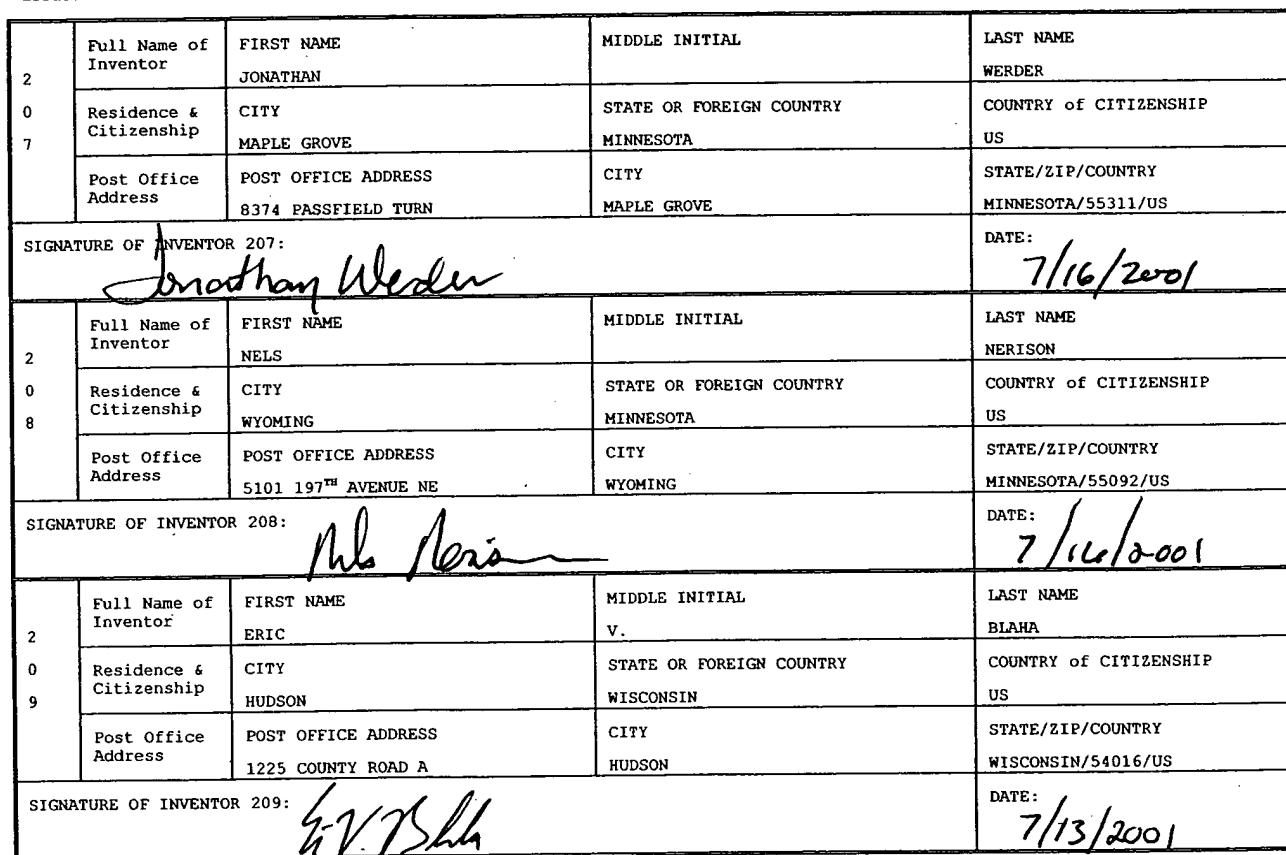 2 0 7
Full Name of Inventor
FIRST NAME
JONATHAN
MIDDLE INITIAL
LAST NAME
WERDER
Residence & Citizenship
CITY
MAPLE GROVE
STATE OR FOREIGN COUNTRY
MINNESOTA
COUNTRY of CITIZENSHIP
US
Post Office Address
POST OFFICE ADDRESS
8374 PASSFIELD TURN
CITY
MAPLE GROVE
STATE/ZIP/COUNTRY
MINNESOTA/55311/US
SIGNATURE OF INVENTOR 207:
Jonathan Werder
DATE:
7/16/2001
2 0 8
Full Name of Inventor
FIRST NAME
NELS
MIDDLE INITIAL
LAST NAME
NERISON
Residence & Citizenship
CITY
WYOMING
STATE OR FOREIGN COUNTRY
MINNESOTA
COUNTRY of CITIZENSHIP
US
Post Office Address
POST OFFICE ADDRESS
5101 197TH AVENUE NE
CITY
WYOMING
STATE/ZIP/COUNTRY
MINNESOTA/55092/US
SIGNATURE OF INVENTOR 208:
Nels Nerison
DATE:
7/16/2001
2 0 9
Full Name of Inventor
FIRST NAME
ERIC
MIDDLE INITIAL
V.
LAST NAME
BLAHA
Residence & Citizenship
CITY
HUDSON
STATE OR FOREIGN COUNTRY
WISCONSIN
COUNTRY of CITIZENSHIP
US
Post Office Address
POST OFFICE ADDRESS
1225 COUNTY ROAD A
CITY
HUDSON
STATE/ZIP/COUNTRY
WISCONSIN/54016/US
SIGNATURE OF INVENTOR 209:
DATE:
7/13/2001